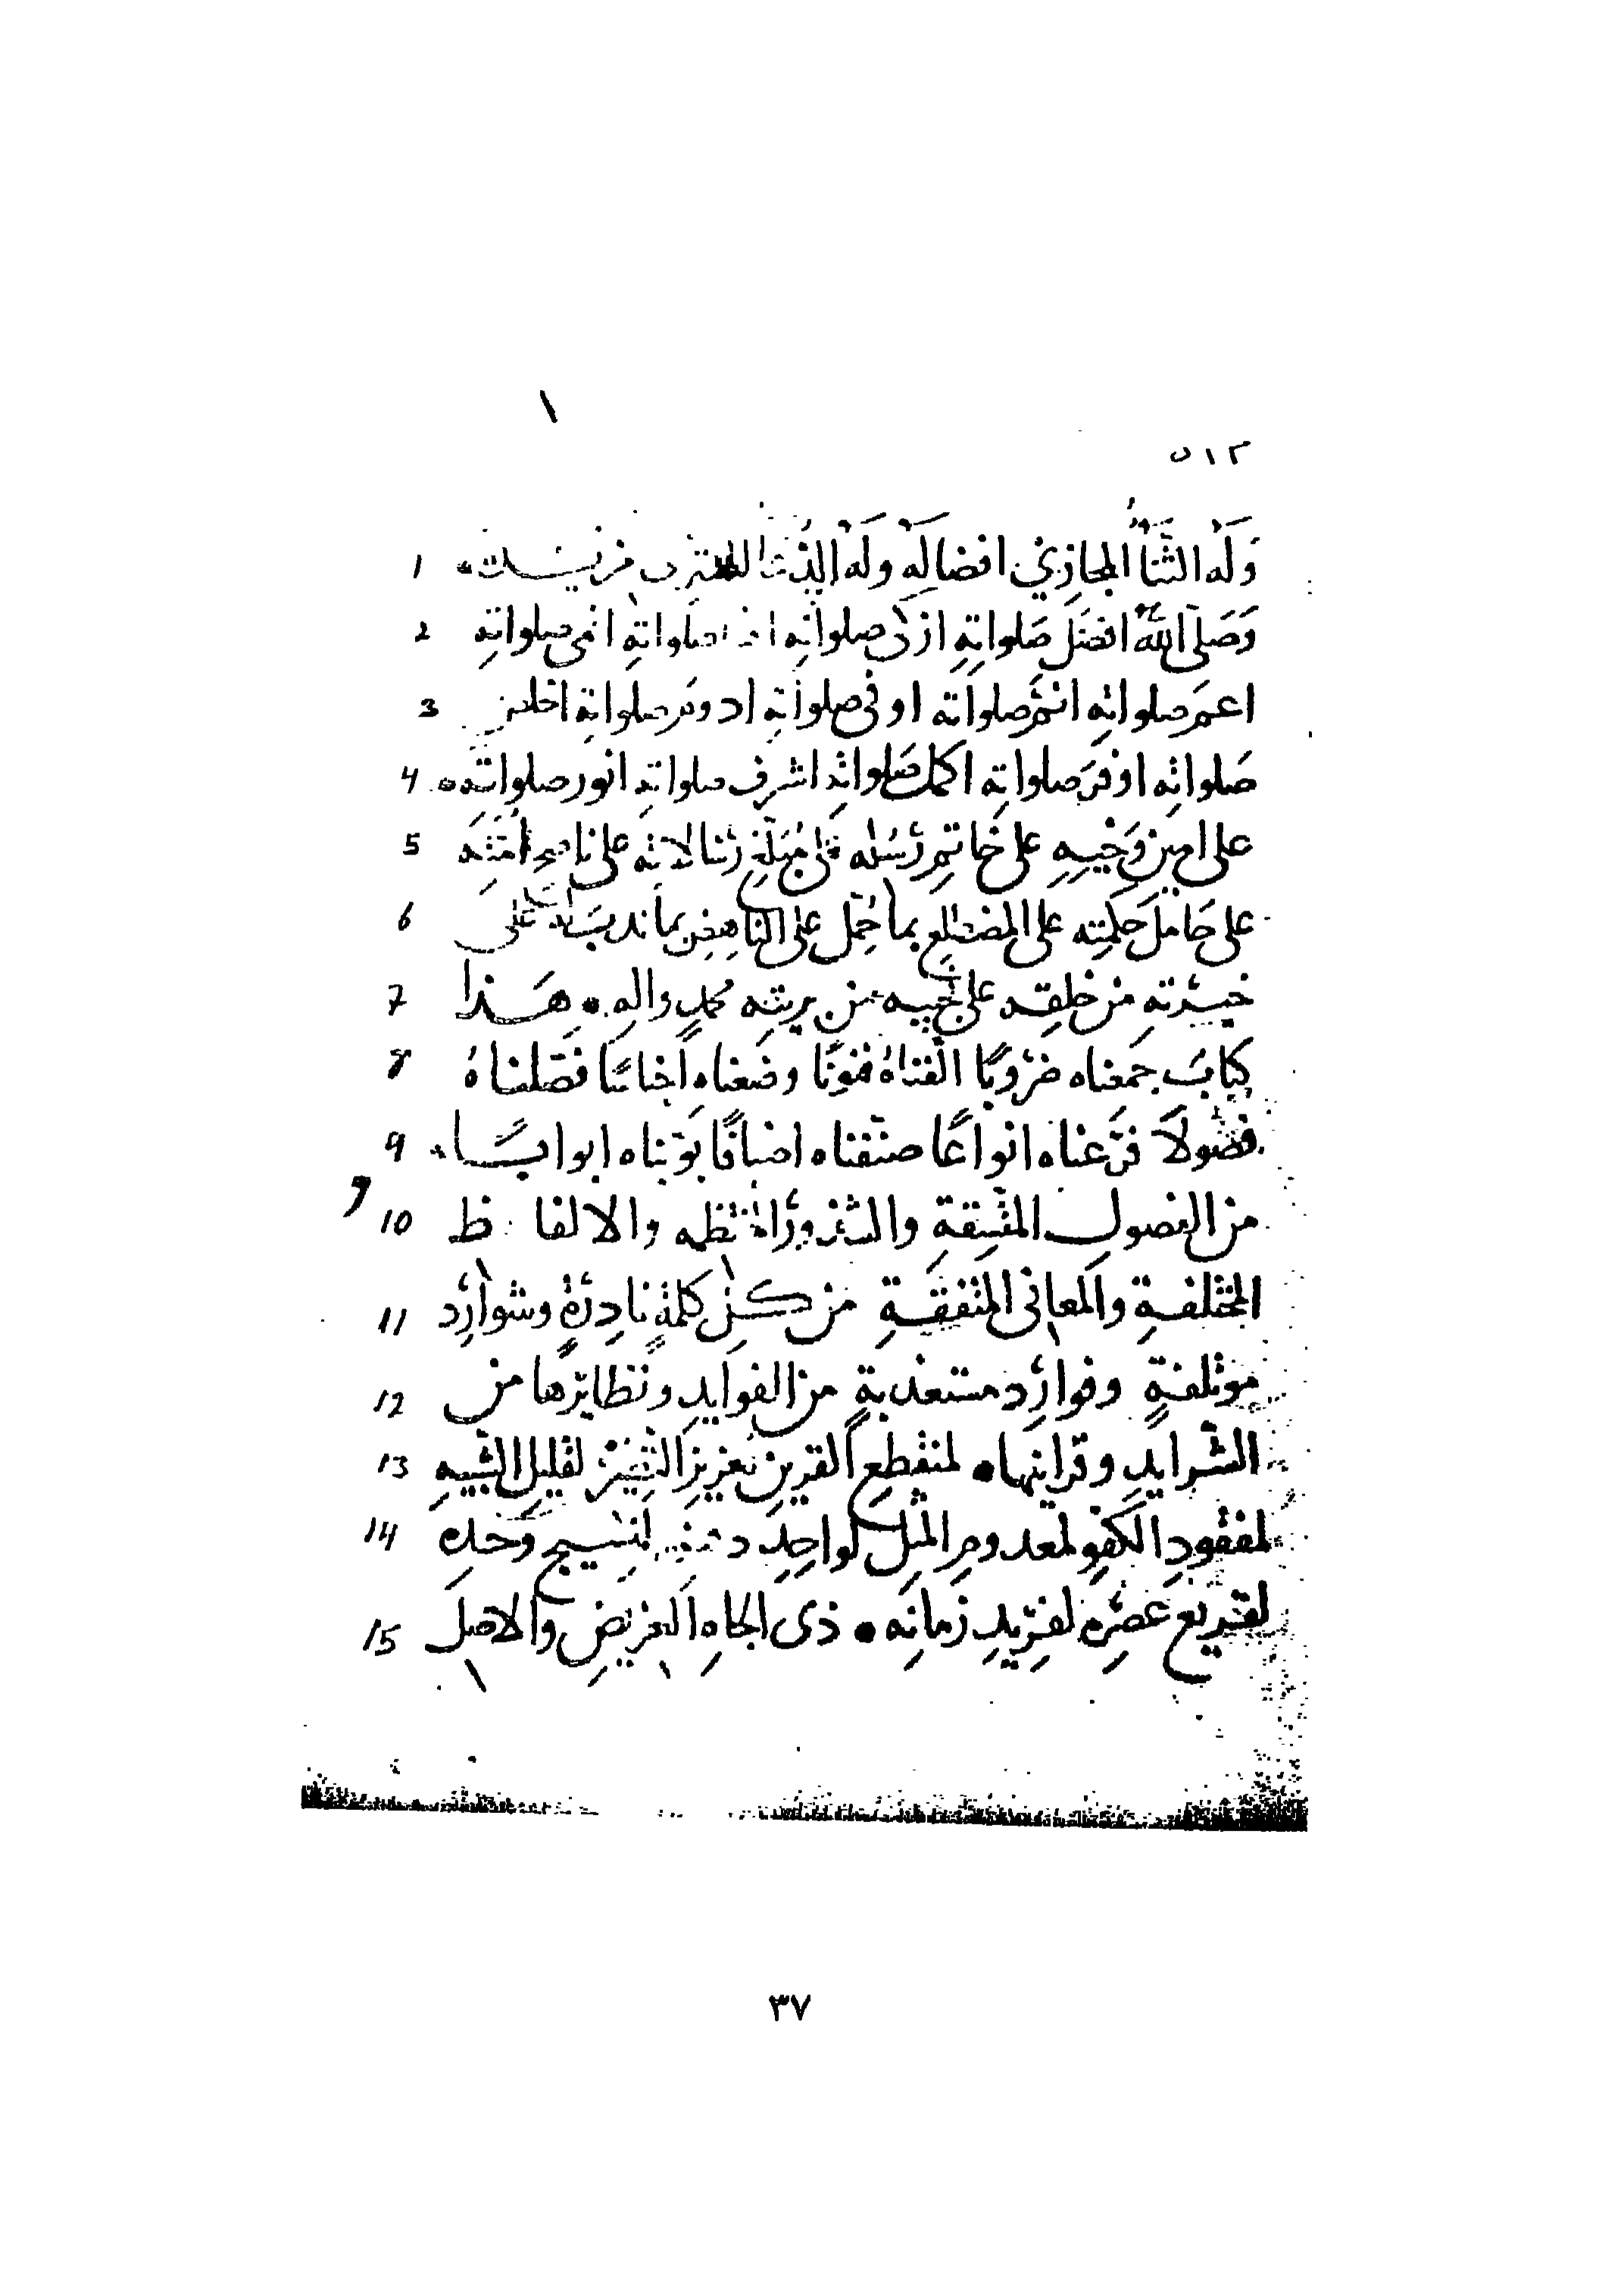 ١
٥١٢
وَلَهُ الثَّنَاءُ المجازي افضالَهُ وَلَهُ 1
وَصَلى اللهُ افضَلَ صَلواتِهِ ازكى صلواتِهِ صلواتِهِ انمى صلواتِهِ 2
اعمَ صلواتِهِ اتمّ صلواتِه اوفى صلواتِهِ ادومَ صلواتِهِ اخلص 3
صَلواتِهِ اوفرَ صلواتِه اكملَ صَلواتِهِ اشرف صلواتِهِ انور صلواتِه 4
على امين وَحْيِهِ على خاتم رُسُله على مُبَلِّغ رسالاته على ناصح امته 5
على حَامِلِ حكمته على المضطلع بما حُمّل على الناهض بما ندب على 6
خيرتهِ من خلقه على نجيبه من بريته محمدٍ واله • هَذا 7
كتابٌ جمعناه ضروبًا الّفناهُ فنونًا وضعناه اجناسًا فصّلناهُ 8
فصُولاً فرّعناه انواعًا صنّفناه اصنافًا بوّبناه ابوابًا 9
من الفصول المتّسقة والشذور المنتظمه والالفاظ 10
المختلفةِ والمعانى المتفقةِ من كلِّ كلمةٍ نادِرةٍ وشوارِد 11
موتلفةٍ وفوارِد مستعذبةٍ من الفوايدِ ونظايرها من 12
الشرايدِ وقراينها • لمنقطعِ القرينِ لعزيز النّظير لقليلِ الشبيهِ 13
لمفقودِ الكفوِ لمعدومِ المثل لواحِدِ دهره لنسيجِ وَحدِه 14
لقريع عصره لفريدِ زمانه • ذى الجاهِ العريضِ والاصل 15
٣٧